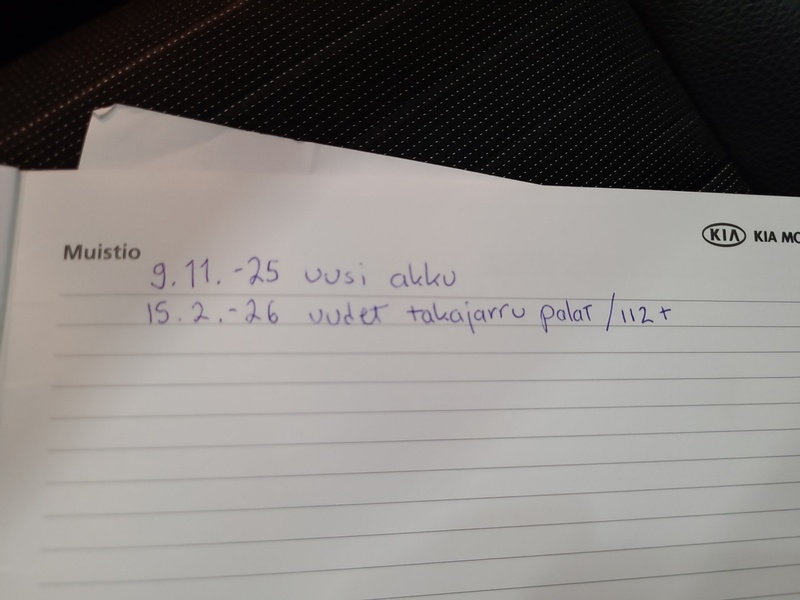 Muistio
KIA KIA MO
9.11.-25 uusi akku
15.2.-26 uudet takajarru palat /112 t